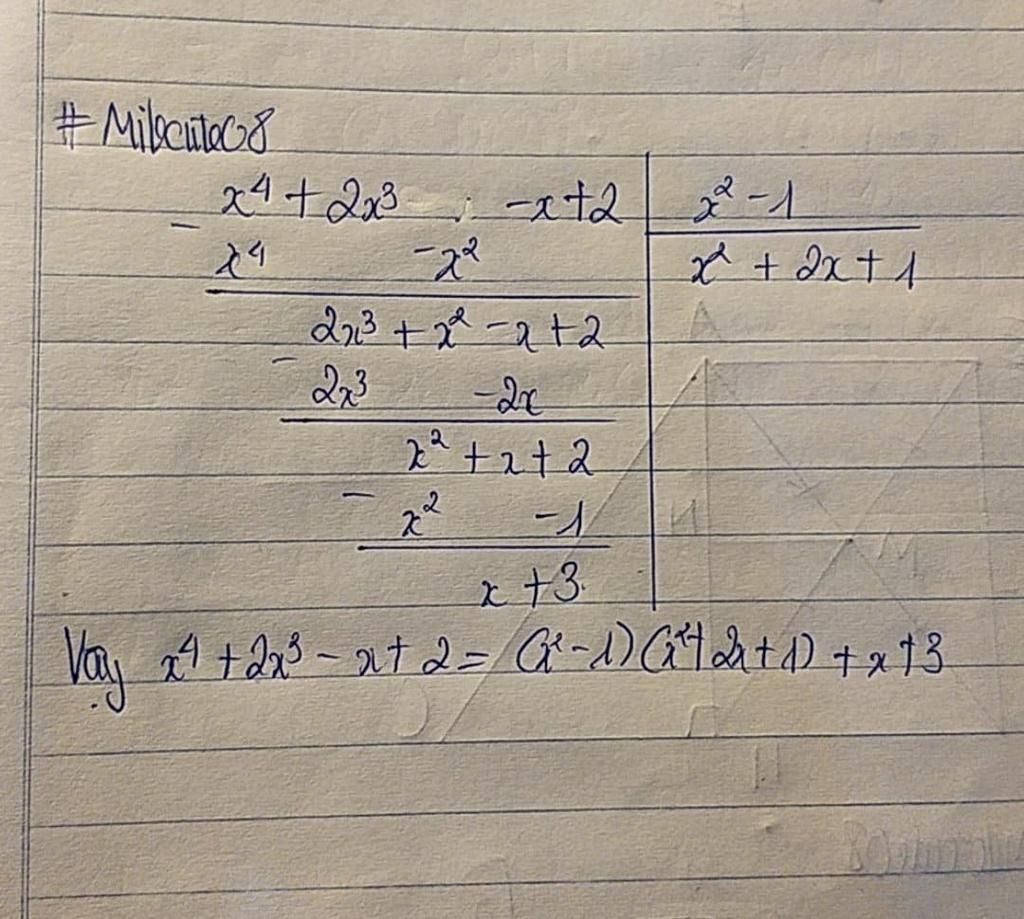 #Milocute08
x⁴ + 2x³ -x+2 | x² -1
- x⁴ -x² | x² + 2x + 1
2x³ + x² - x + 2
- 2x³ -2x
x² + x + 2
- x² -1
x + 3
Vậy x⁴ + 2x³ - x + 2 = (x² - 1)(x² + 2x + 1) + x + 3